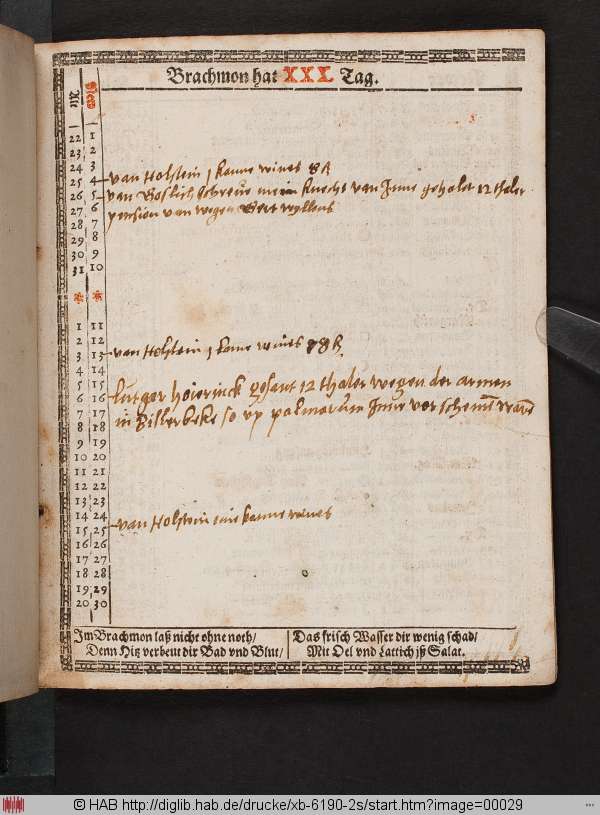 Brachmon hat XXX Tag.
Alt New
1
22 2
23 3
24 4
25 5
26 6
27 7
28 8
29 9
30 10
31
* *
1 11
2 12
3 13
4 14
5 15
6 16
7 17
8 18
9 19
10 20
11 21
12 22
13 23
14 24
15 25
16 26
17 27
18 28
19 29
20 30
van Holstein 1 kanne wines 8 ß
van schreve mein knecht van Imme gehalet 12 thaler
pension van wegen
van Holstein 1 kanne wines 8 ß
Lutger hoierinck gesant 12 thaler wegen der armen
in Billerbeke so up palmarum
van Holstein ein kanne wines
Im Brachmon laß nicht ohne noth/
Denn Hitz verbeut dir Bad vnd Blut/
Das frisch Wasser dir wenig schad/
Mit Oel vnd Lattich jß Salat.
© HAB http://diglib.hab.de/drucke/xb-6190-2s/start.htm?image=00029